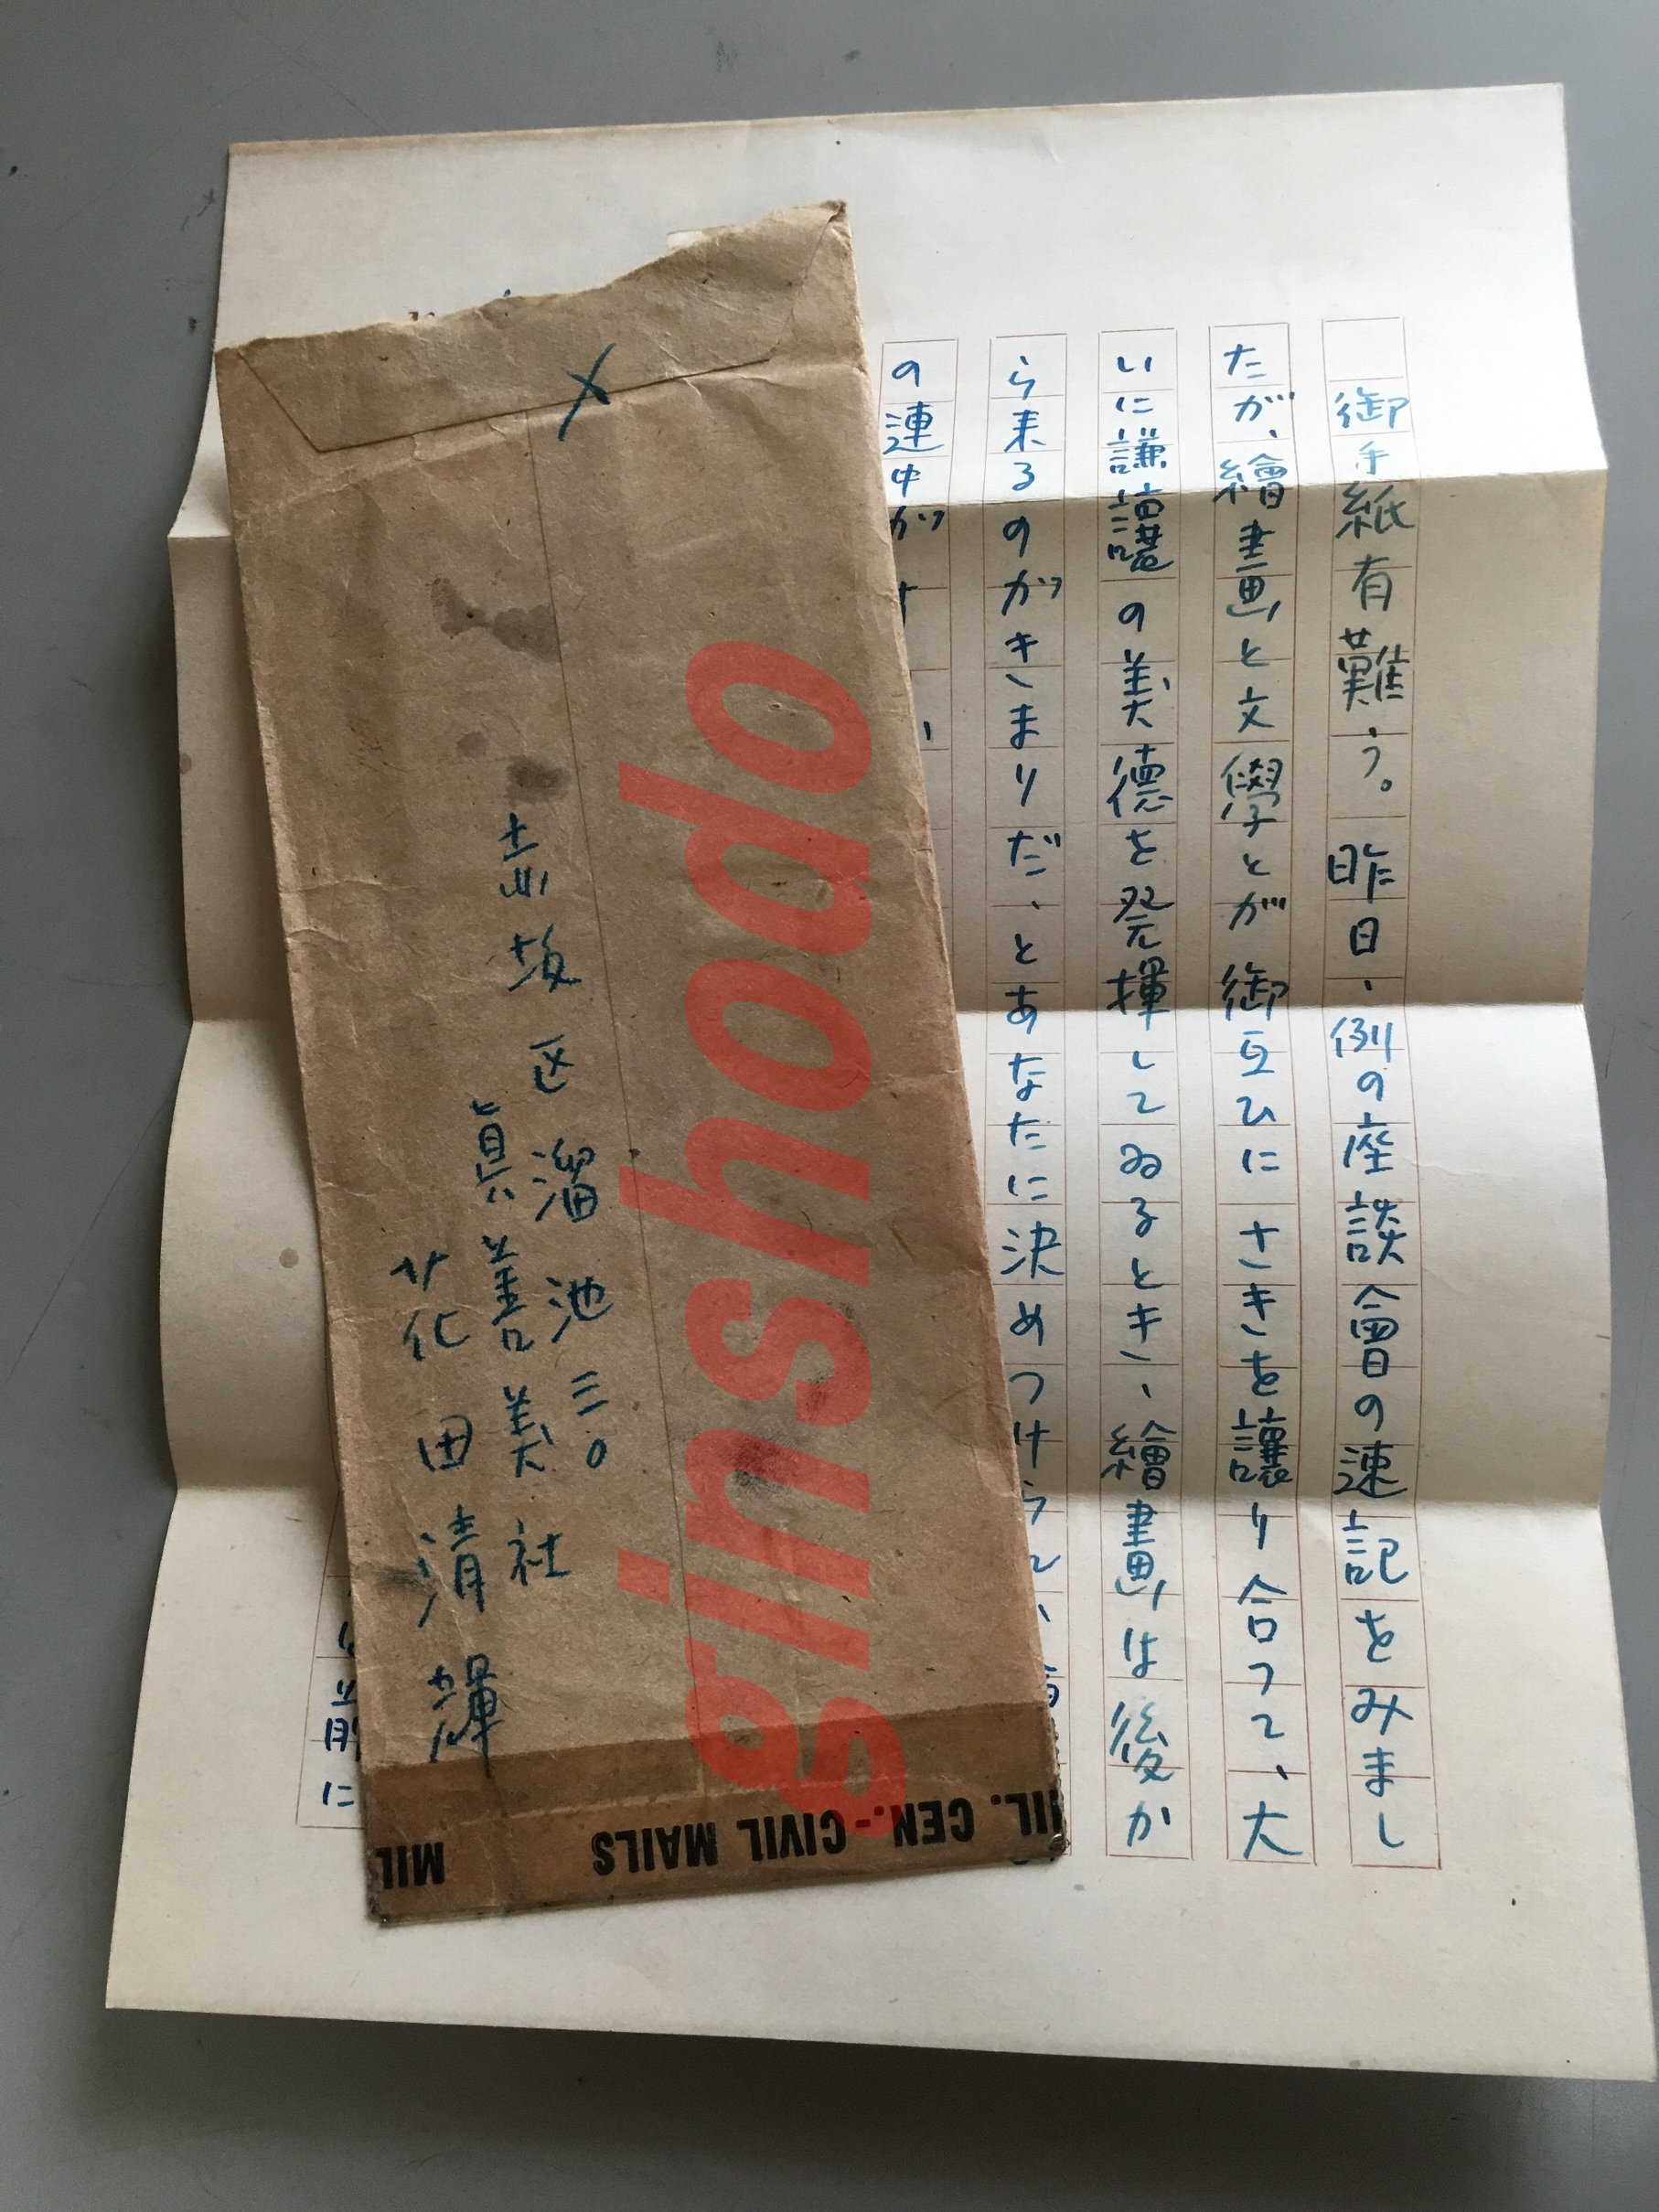 御手紙有難う。昨日、例の座談會の速記をみまし
たが、繪畫と文學とが御互ひにさきを讓り合つて、大
いに謙讓の美德を発揮してゐるとき、繪畫は後か
ら来るのがきまりだ、とあなたに決めつけられ、
の連中が
前に
〆
赤坂区溜池三〇
眞善美社
花田清輝
MIL. CEN.-CIVIL MAILS
MIL
ginshodo